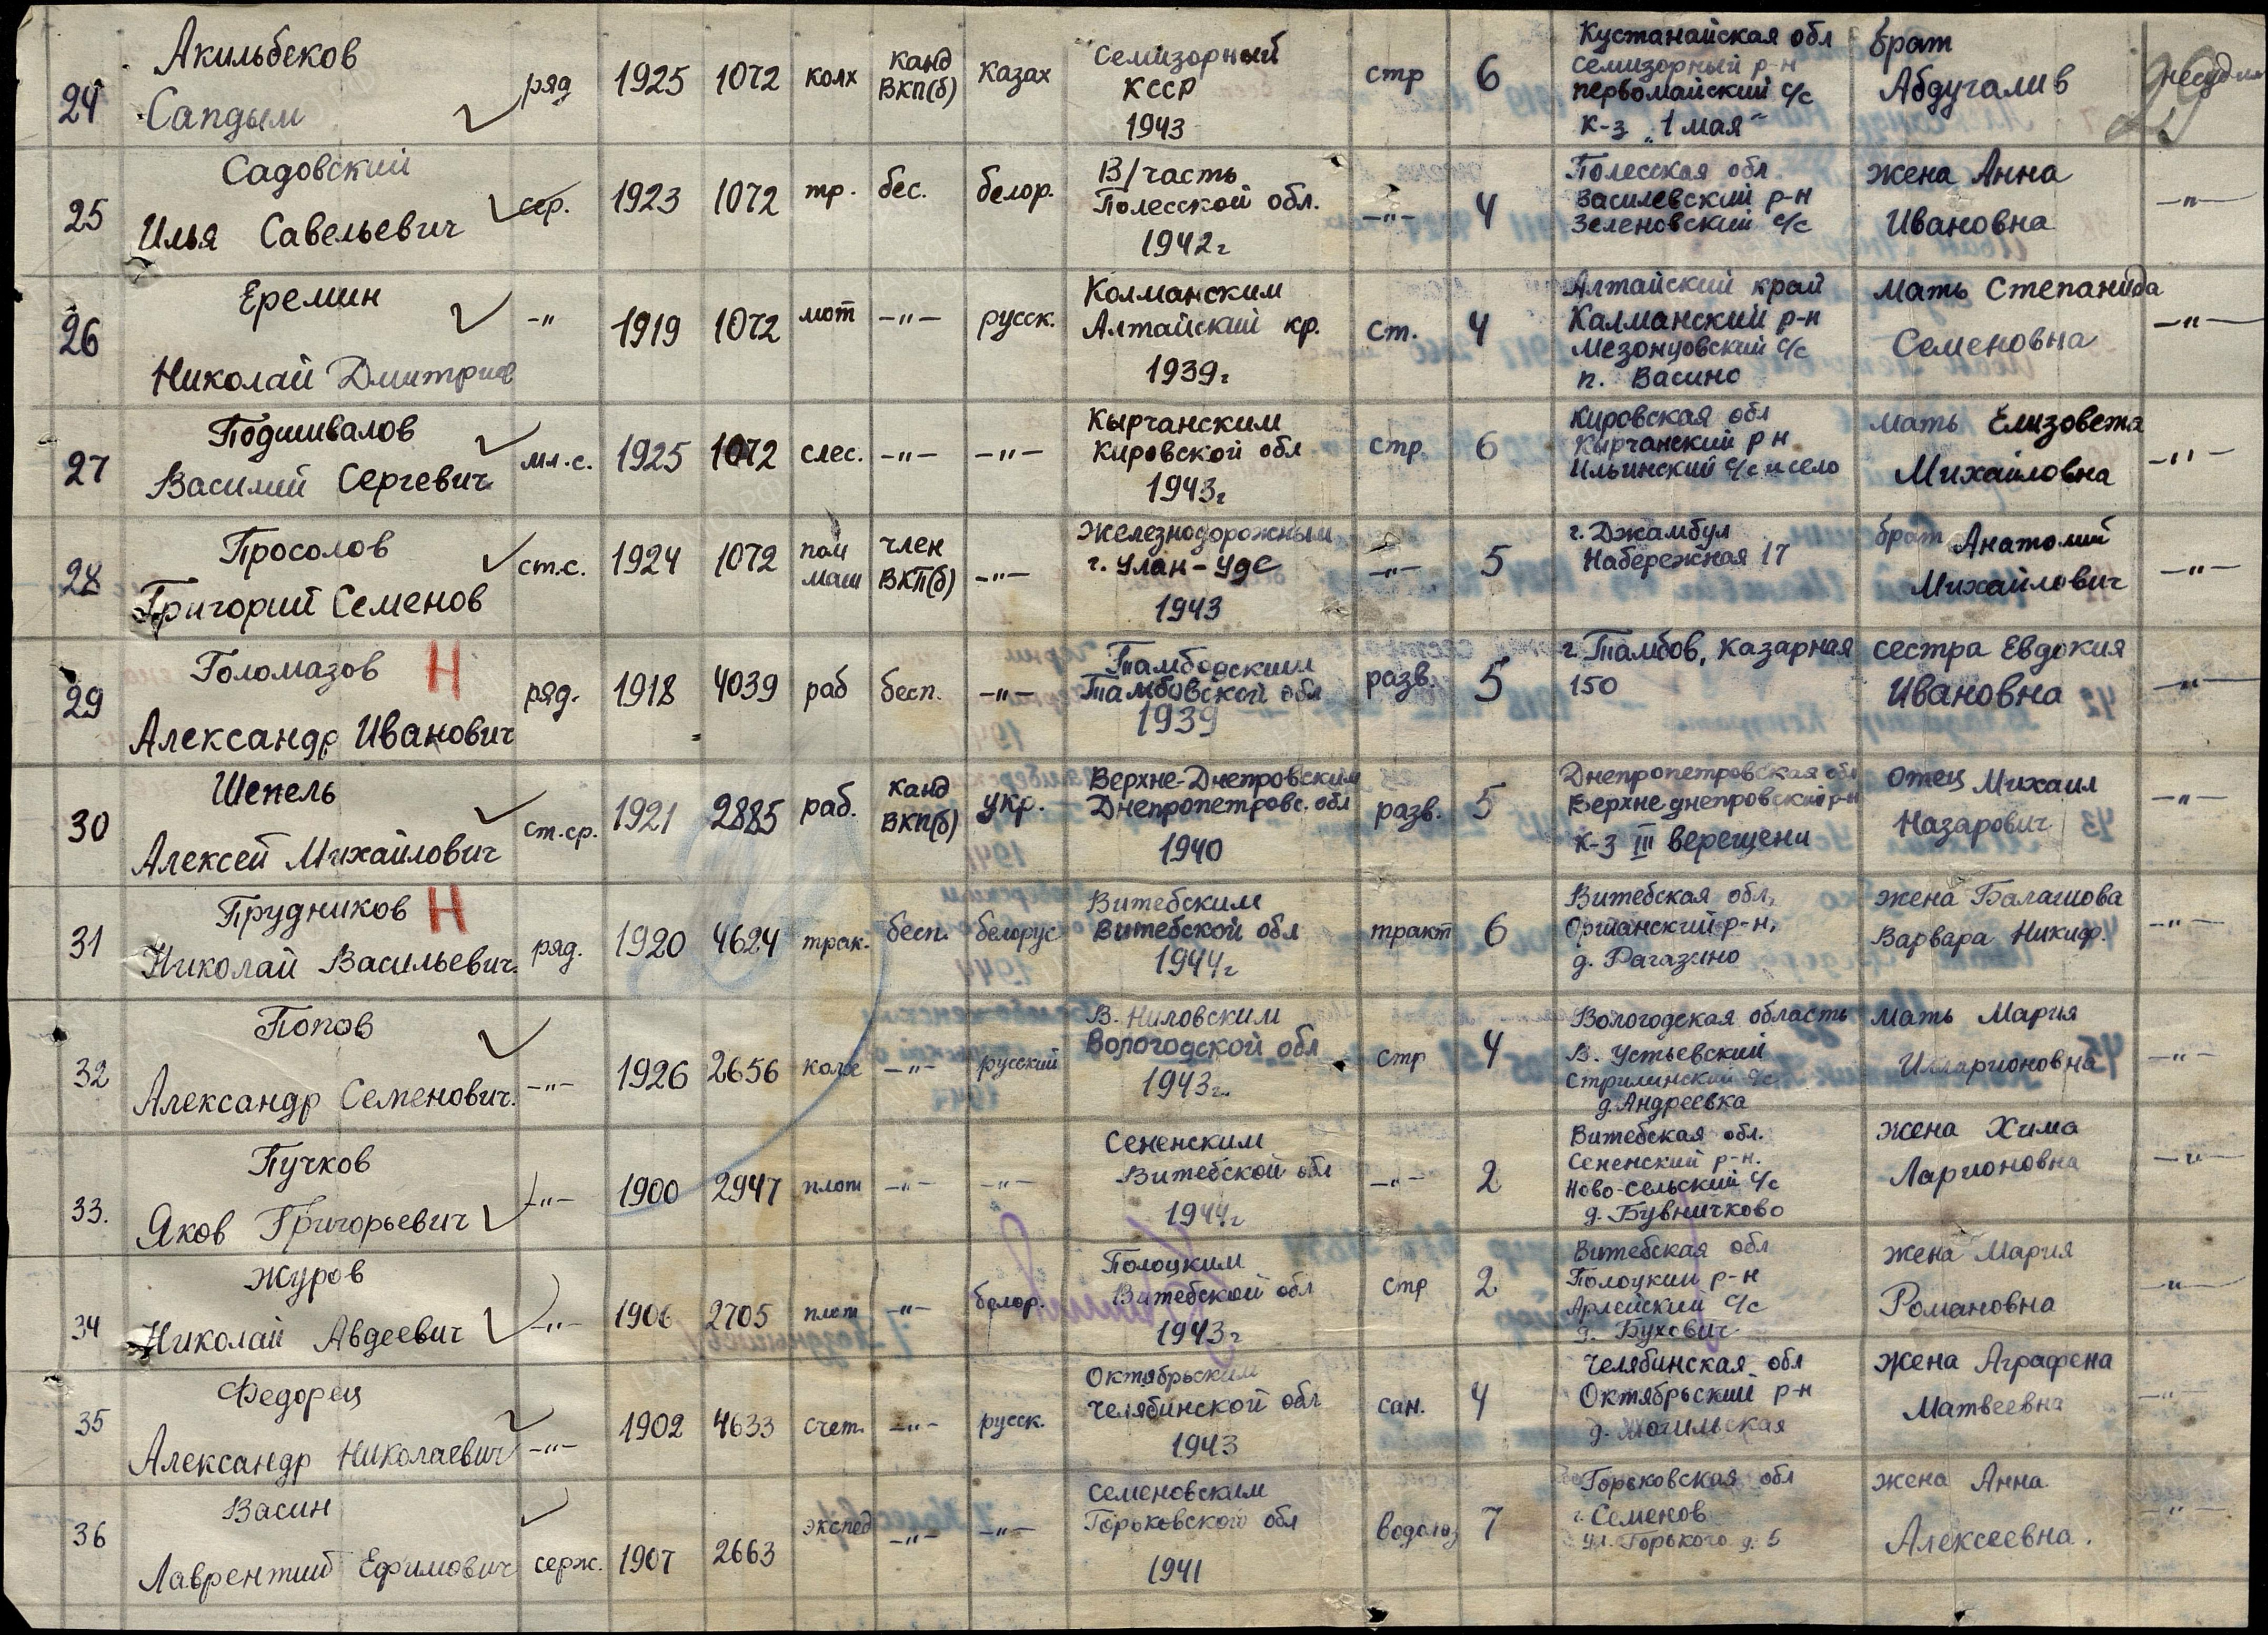 24 Акильбеков Сапдым ряд 1925 1072 колх канд ВКП(б) казах Семизорный КССР 1943 стр 6 Кустанайская обл Семизорный р-н Первомайский с/с к-з „1 мая" брат Абдугалив несудим
25 Садовский Илья Савельевич сер. 1923 1072 тр. бес. белор. В/часть Полесской обл. 1942г -"- 4 Полесская обл. Василевский р-н Зеленовский с/с жена Анна Ивановна -"-
26 Еремин Николай Дмитриев -"- 1919 1072 мот -"- русск. Колманским Алтайский кр. 1939г ст. 4 Алтайский край Калманский р-н Мезонцовский с/с п. Васино мать Степанида Семеновна -"-
27 Подшивалов Василий Сергевич мл.с. 1925 1072 слес. -"- -"- Кырчанским Кировской обл 1943г стр. 6 Кировская обл Кырчанский р н Ильинский с/с и село мать Елизовета Михайловна -"-
28 Просолов Григорий Семенов ст.с. 1924 1072 пом маш член ВКП(б) -"- Железнодорожным г. Улан-Уде 1943 -"- 5 г. Джамбул Набережная 17 брат Анатолий Михайлович -"-
29 Голомазов Н Александр Иванович ряд. 1918 4039 раб бесп. -"- Тамбовским Тамбовской обл 1939 разв. 5 г. Тамбов, Казарная 150 сестра Евдокия Ивановна -"-
30 Шепель Алексей Михайлович ст.ср. 1921 2885 раб. канд ВКП(б) укр. Верхне-Днепровским Днепропетровс. обл 1940 разв. 5 Днепропетровская обл Верхнеднепровский р-н к-з III верещени отец Михаил Назарович -"-
31 Прудников Н Николай Васильевич. ряд. 1920 4624 трак. бесп. белорус Витебским Витебской обл 1944г тракт 6 Витебская обл, Оршанский р-н, д. Рагазино жена Балашова Варвара Никиф. -"-
32 Попов Александр Семенович. -"- 1926 2656 колх -"- русский В. Ниловским Вологодской обл 1943г. стр 4 Вологодская область В. Устьевский Стрилинский с/с д. Андреевка мать Мария Илларионовна -"-
33. Пучков Яков Григорьевич -"- 1900 2947 плот -"- -"- Сененским Витебской обл 1944г -"- 2 Витебская обл. Сененский р-н. Ново-Сельский с/с д. Бувничково жена Хима Ларионовна -"-
34 Журов Николай Авдеевич -"- 1906 2705 плот -"- белор. Полоцким Витебской обл 1943г стр 2 Витебская обл Полоцкий р-н Арлейский с/с д. Бухович жена Мария Романовна -"-
35 Федорец Александр Николаевич -"- 1902 4633 счет. -"- русск. Октябрьским Челябинской обл 1943 сан. 4 Челябинская обл Октябрьский р-н д. Могильская жена Аграфена Матвеевна -"-
36 Васин Лаврентий Ефимович серж. 1907 2663 экспед -"- -"- Семеновским Горьковского обл 1941 водолаз 7 Горьковская обл г. Семенов ул. Горького д. 5 жена Анна Алексеевна. -"-